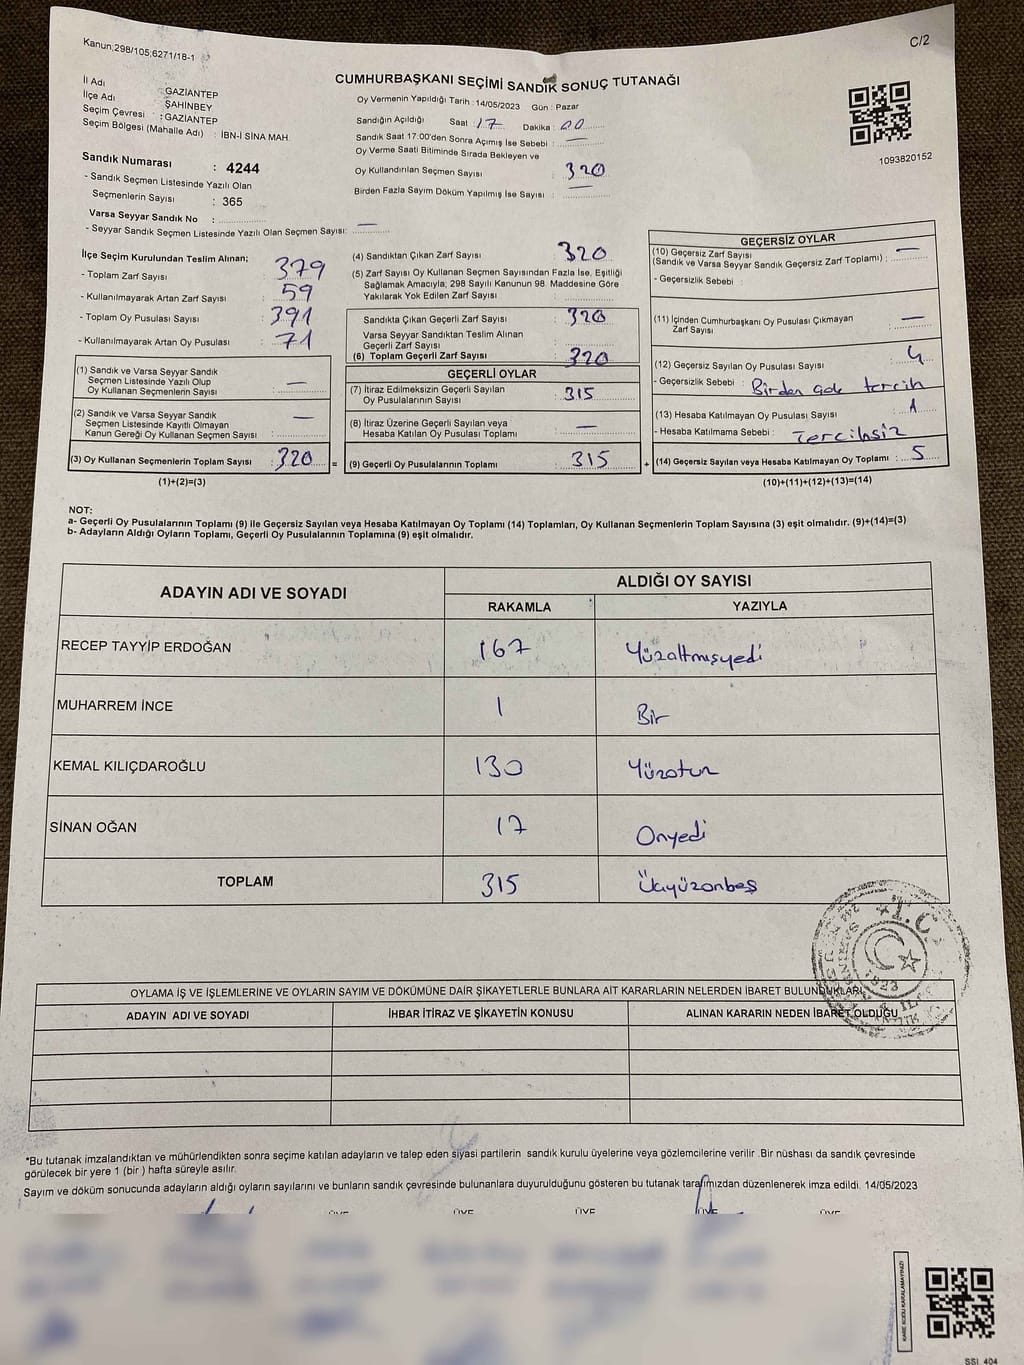 Kanun;298/105;6271/18-1
C/2
CUMHURBAŞKANI SEÇİMİ SANDIK SONUÇ TUTANAĞI
İl Adı : GAZİANTEP
İlçe Adı : ŞAHİNBEY
Seçim Çevresi : GAZİANTEP
Seçim Bölgesi (Mahalle Adı) : İBN-İ SİNA MAH.
Sandık Numarası : 4244
- Sandık Seçmen Listesinde Yazılı Olan
Seçmenlerin Sayısı : 365
Varsa Seyyar Sandık No :
- Seyyar Sandık Seçmen Listesinde Yazılı Olan Seçmen Sayısı: —
Oy Vermenin Yapıldığı Tarih : 14/05/2023 Gün : Pazar
Sandığın Açıldığı Saat 17 Dakika : 00
Sandık Saat 17:00'den Sonra Açımış İse Sebebi : —
Oy Verme Saati Bitiminde Sırada Bekleyen ve
Oy Kullandırılan Seçmen Sayısı : 320
Birden Fazla Sayım Döküm Yapılmış İse Sayısı : —
1093820152
İlçe Seçim Kurulundan Teslim Alınan;
- Toplam Zarf Sayısı : 379
- Kullanılmayarak Artan Zarf Sayısı : 59
- Toplam Oy Pusulası Sayısı : 391
- Kullanılmayarak Artan Oy Pusulası : 71
(1) Sandık ve Varsa Seyyar Sandık
Seçmen Listesinde Yazılı Olup
Oy Kullanan Seçmenlerin Sayısı : —
(2) Sandık ve Varsa Seyyar Sandık
Seçmen Listesinde Kayıtlı Olmayan
Kanun Gereği Oy Kullanan Seçmen Sayısı : —
(3) Oy Kullanan Seçmenlerin Toplam Sayısı : 320
(1)+(2)=(3)
(4) Sandıktan Çıkan Zarf Sayısı : 320
(5) Zarf Sayısı Oy Kullanan Seçmen Sayısından Fazla İse, Eşitliği
Sağlamak Amacıyla, 298 Sayılı Kanunun 98. Maddesine Göre
Yakılarak Yok Edilen Zarf Sayısı :
Sandıkta Çıkan Geçerli Zarf Sayısı : 320
Varsa Seyyar Sandıktan Teslim Alınan
Geçerli Zarf Sayısı :
(6) Toplam Geçerli Zarf Sayısı : 320
GEÇERLİ OYLAR
(7) İtiraz Edilmeksizin Geçerli Sayılan
Oy Pusulalarının Sayısı : 315
(8) İtiraz Üzerine Geçerli Sayılan veya
Hesaba Katılan Oy Pusulası Toplamı : —
= (9) Geçerli Oy Pusulalarının Toplamı : 315
GEÇERSİZ OYLAR
(10) Geçersiz Zarf Sayısı
(Sandık ve Varsa Seyyar Sandık Geçersiz Zarf Toplamı) : —
- Geçersizlik Sebebi :
(11) İçinden Cumhurbaşkanı Oy Pusulası Çıkmayan
Zarf Sayısı : —
(12) Geçersiz Sayılan Oy Pusulası Sayısı : 4
- Geçersizlik Sebebi : Birden çok tercih
(13) Hesaba Katılmayan Oy Pusulası Sayısı : 1
- Hesaba Katılmama Sebebi : Tercihsiz
+ (14) Geçersiz Sayılan veya Hesaba Katılmayan Oy Toplamı : 5
(10)+(11)+(12)+(13)=(14)
NOT:
a- Geçerli Oy Pusulalarının Toplamı (9) ile Geçersiz Sayılan veya Hesaba Katılmayan Oy Toplamı (14) Toplamları, Oy Kullanan Seçmenlerin Toplam Sayısına (3) eşit olmalıdır. (9)+(14)=(3)
b- Adayların Aldığı Oyların Toplamı, Geçerli Oy Pusulalarının Toplamına (9) eşit olmalıdır.
ADAYIN ADI VE SOYADI
ALDIĞI OY SAYISI
RAKAMLA
YAZIYLA
RECEP TAYYİP ERDOĞAN 167 Yüzaltmışyedi
MUHARREM İNCE 1 Bir
KEMAL KILIÇDAROĞLU 130 Yüzotuz
SİNAN OĞAN 17 Onyedi
TOPLAM 315 Üçyüzonbeş
T.C.
1923
OYLAMA İŞ VE İŞLEMLERİNE VE OYLARIN SAYIM VE DÖKÜMÜNE DAİR ŞİKAYETLERLE BUNLARA AİT KARARLARIN NELERDEN İBARET BULUNDUKLARI
ADAYIN ADI VE SOYADI
İHBAR İTİRAZ VE ŞİKAYETİN KONUSU
ALINAN KARARIN NEDEN İBARET OLDUĞU
*Bu tutanak imzalandıktan ve mühürlendikten sonra seçime katılan adayların ve talep eden siyasi partilerin sandık kurulu üyelerine veya gözlemcilerine verilir .Bir nüshası da sandık çevresinde
görülecek bir yere 1 (bir ) hafta süreyle asılır.
Sayım ve döküm sonucunda adayların aldığı oyların sayılarını ve bunların sandık çevresinde bulunanlara duyurulduğunu gösteren bu tutanak tarafımızdan düzenlenerek imza edildi. 14/05/2023
ÜYE ÜYE ÜYE ÜYE ÜYE
KARE KODU KARALAMAYINIZ!
SSİ 404